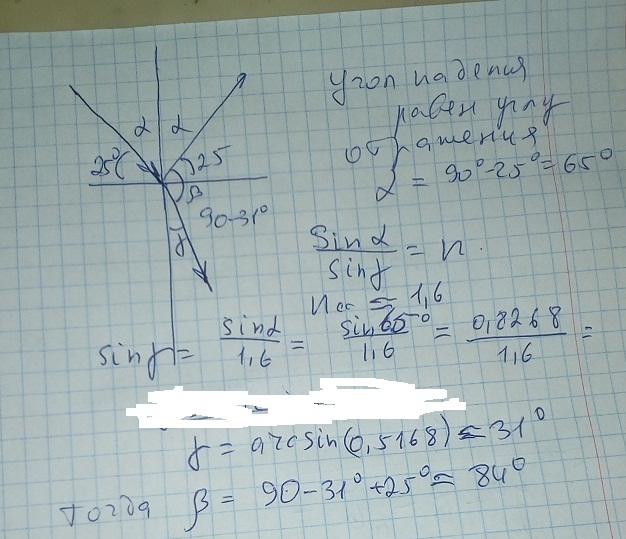 α α
25° 25
β
90-31°
γ
Угол падения
равен углу
отражения
α = 90°-25°=65°
sinα / sinγ = n.
n = 1,6
sinγ = sinα / 1,6 = sin65° / 1,6 = 0,8268 / 1,6 =
γ = arcsin(0,5168) = 31°
Тогда β = 90-31°+25° = 84°